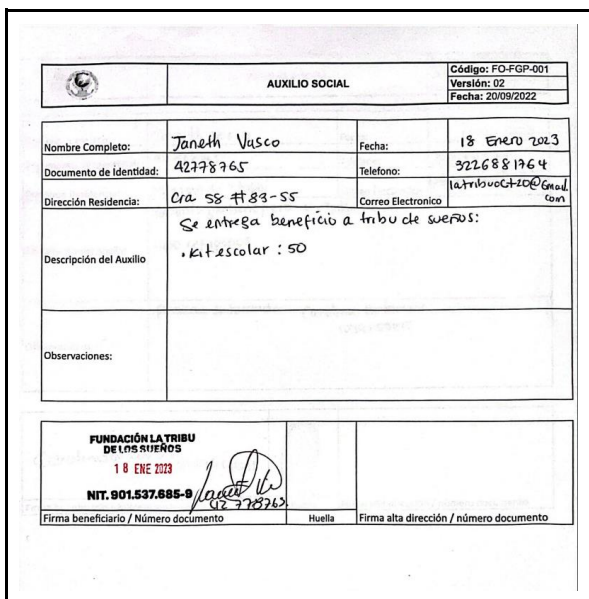 AUXILIO SOCIAL
Código: FO-FGP-001
Versión: 02
Fecha: 20/09/2022
Nombre Completo: Janeth Vasco
Fecha: 18 Enero 2023
Documento de Identidad: 42778765
Telefono: 3226881764
Dirección Residencia: Cra 58 #83-55
Correo Electronico latribuct20@Gmail.com
Descripción del Auxilio
Se entrega beneficio a tribu de sueños:
. Kit escolar : 50
Observaciones:
FUNDACIÓN LA TRIBU
DE LOS SUEÑOS
18 ENE 2023
NIT. 901.537.685-9
42 778765.
Firma beneficiario / Número documento
Huella
Firma alta dirección / número documento